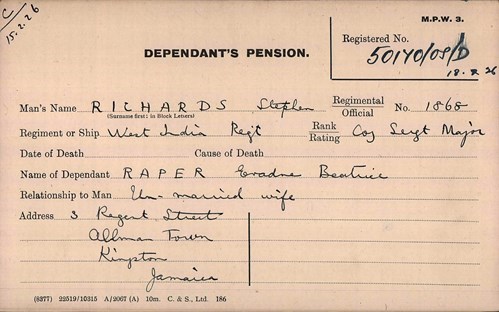 C
15.2.26
M.P.W. 3.
DEPENDANT'S PENSION.
Registered No.
50170/05/D
18.2.26
Man's Name RICHARDS Stephen Regimental Official No. 1868
(Surname first: in Block Letters)
Regiment or Ship West India Regt Rank Rating Coy Sergt Major
Date of Death Cause of Death
Name of Dependant RAPER Evadne Beatrice
Relationship to Man Un-married wife
Address 3 Regent Street
Allman Town
Kingston
Jamaica
(8377) 22519/10315 A/2067 (A) 10m. C. & S., Ltd. 186